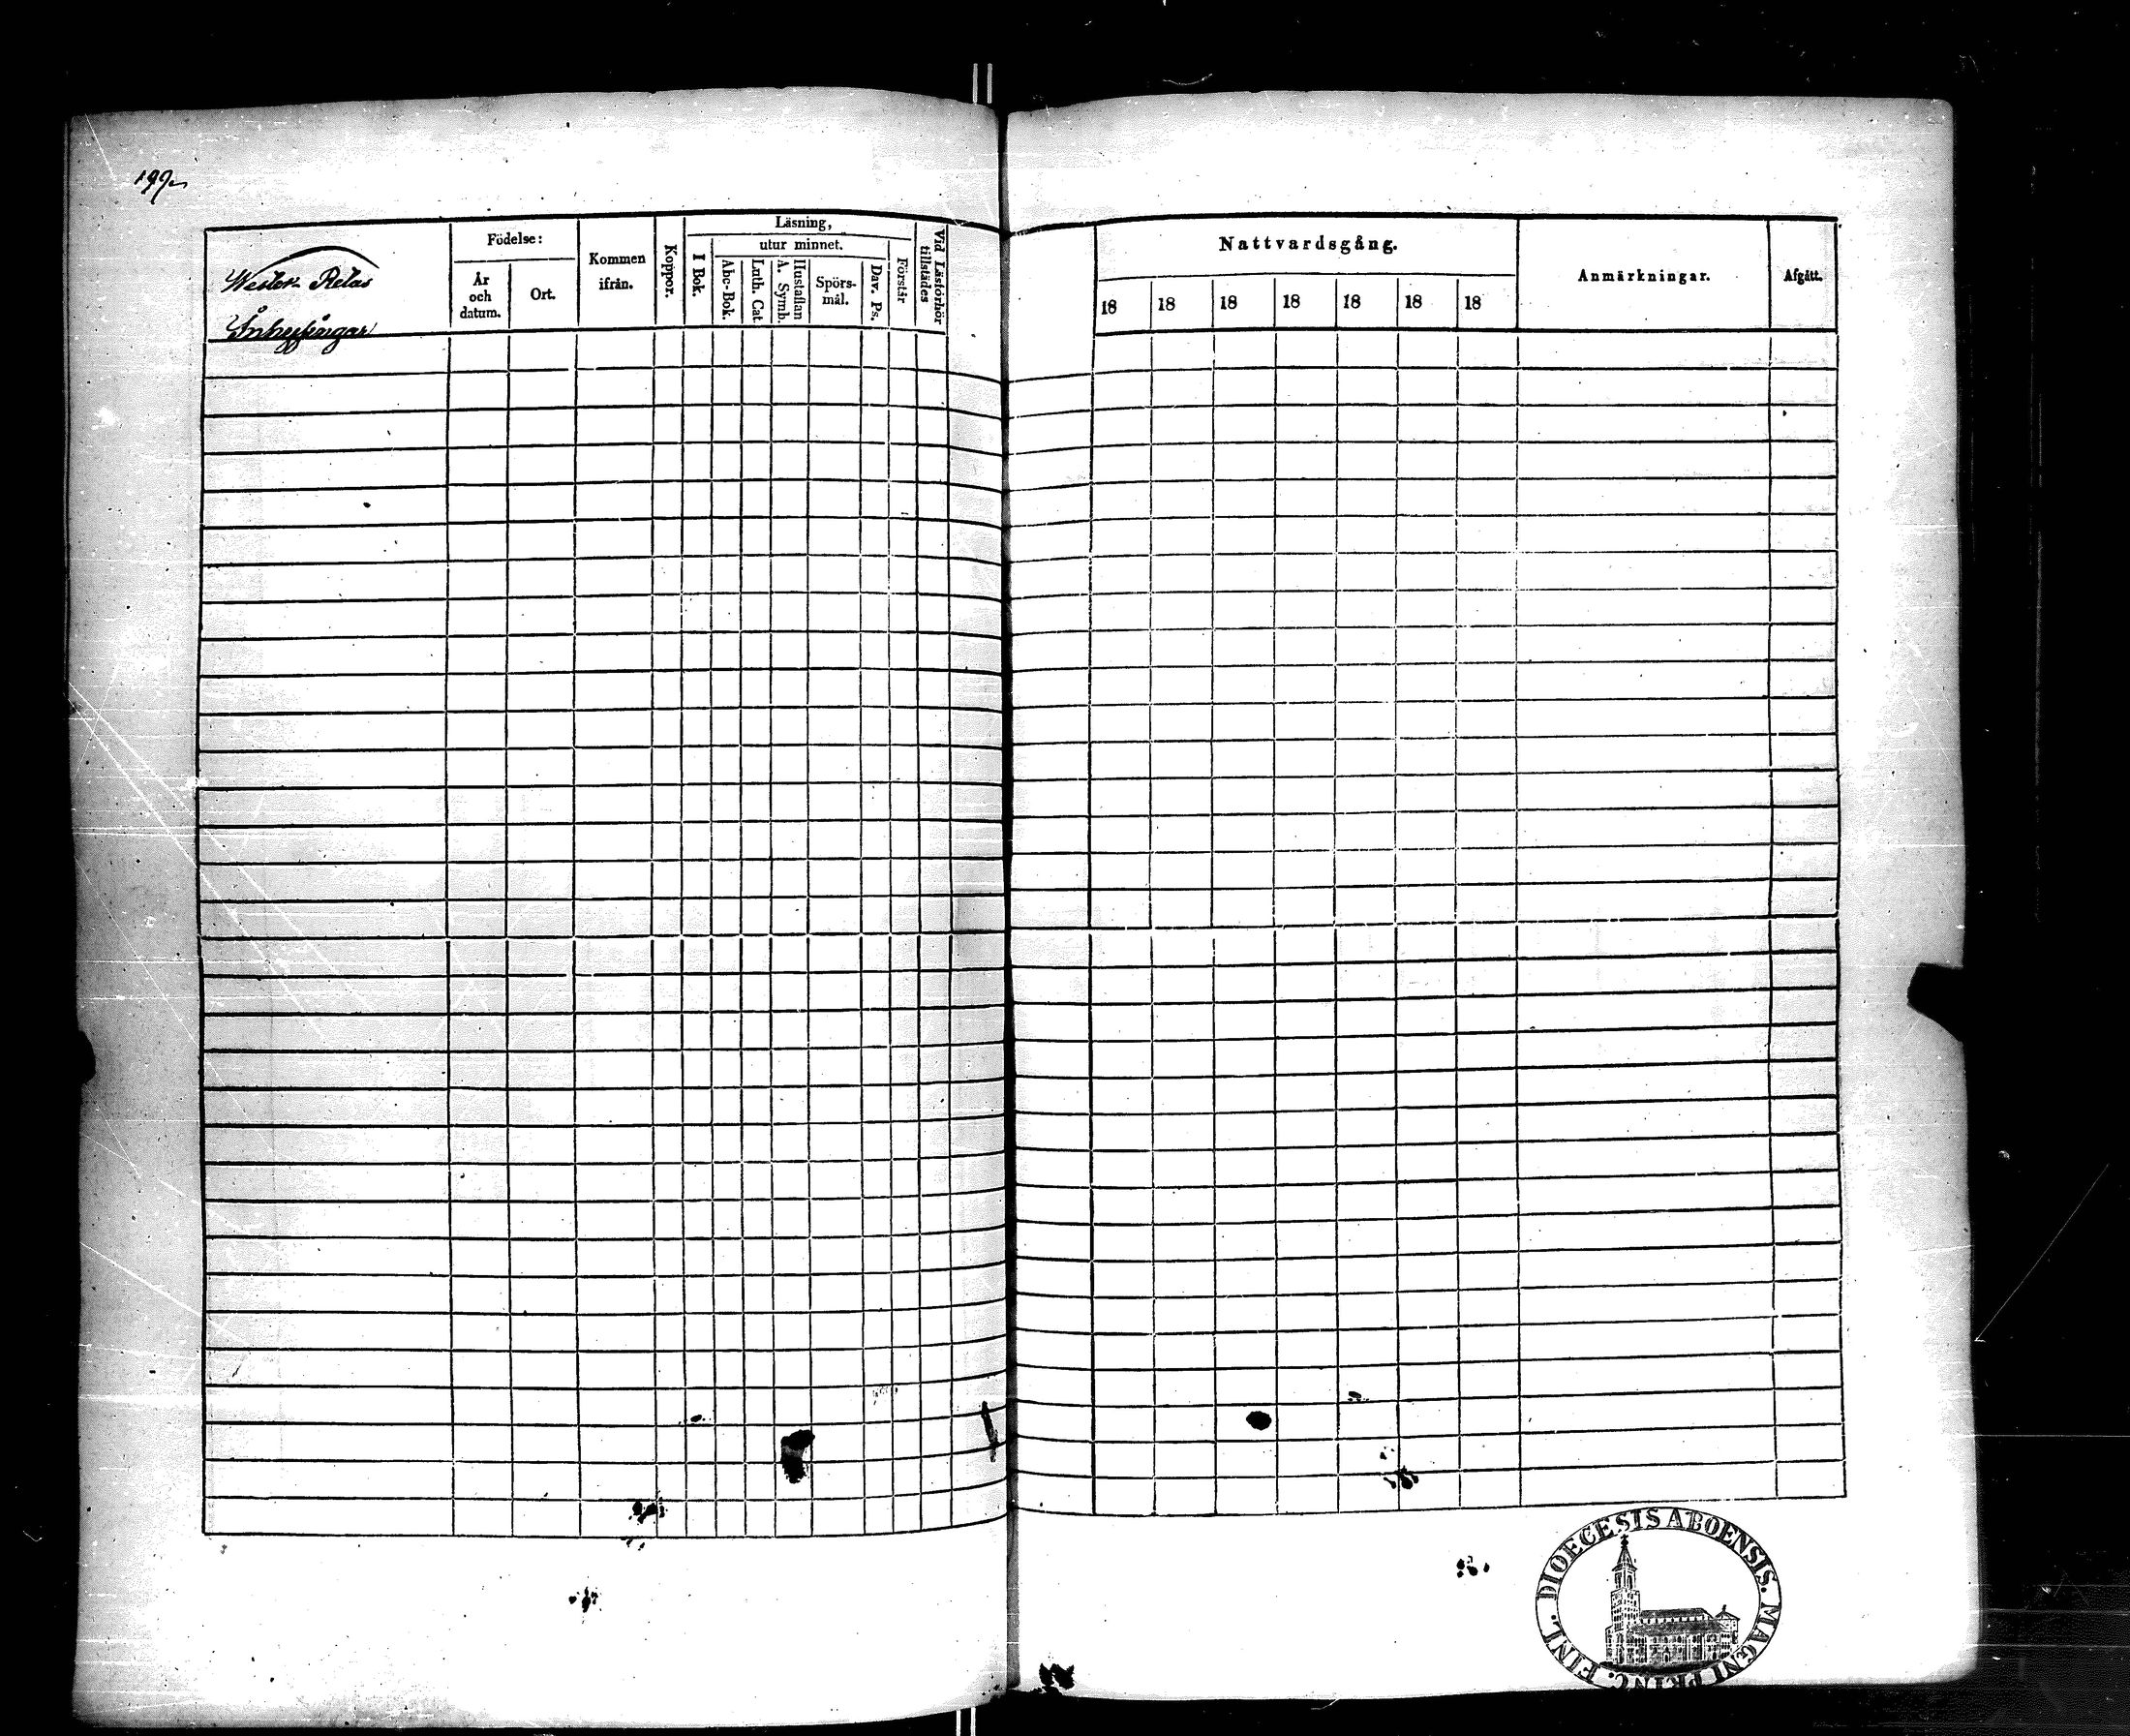 197.
Wester Retas
Inhysingar
Födelse:
År
och
datum.
Ort.
Kommen
ifrån.
Koppor.
Läsning,
I Bok.
utur minnet.
Abc-Bok.
Luth. Cat.
A. Symb.
Hustaflan
Spörs-
mål.
Dav. Ps.
Förstår
Vid Läsförhör
tillstädes
Nattvardsgång.
18 18 18 18 18 18 18
Anmärkningar.
Afgått.
DIOECESIS ABOENSIS. MAGNI PRINC. FINL.